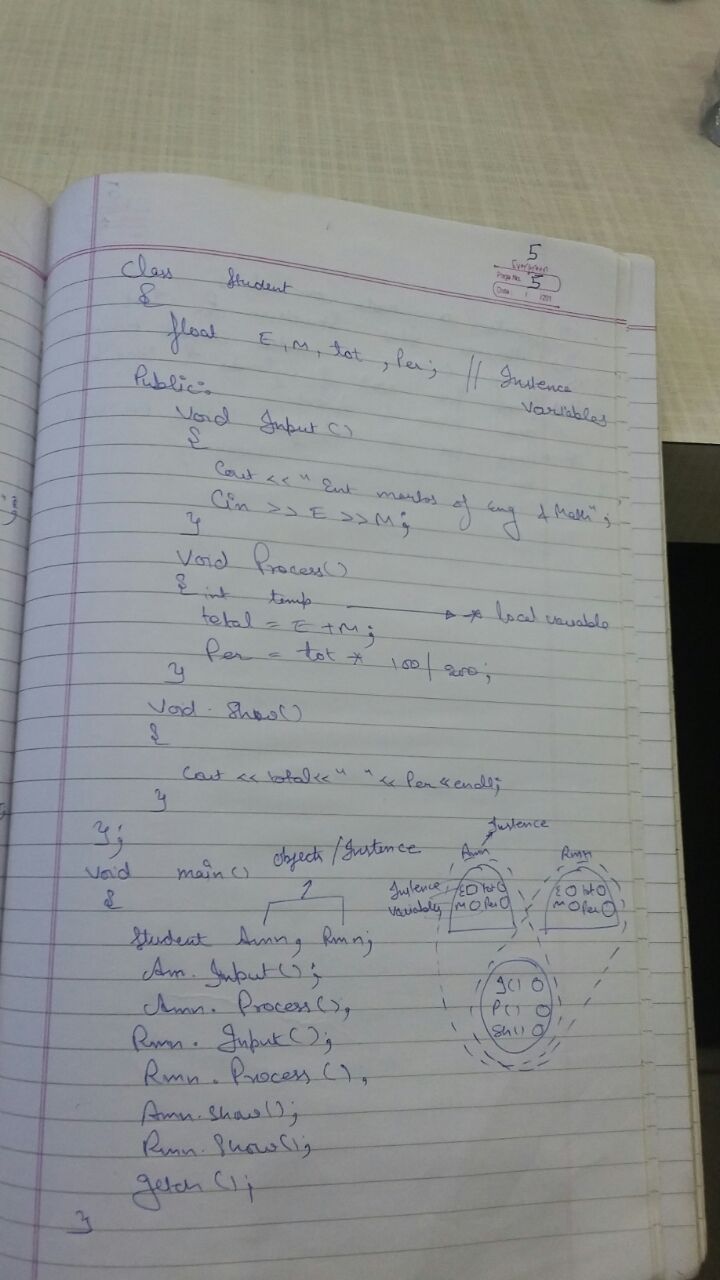 5
Evergreen
Page No. 5
Date / /201
Class Student
{
float E, M, tot, Per; // Instence
variables
Public:
Void Input()
{
Cout << " Ent marks of eng & Math";
Cin >> E >> M;
}
Void Process()
{ int temp → * local variable
total = E + M;
Per = tot * 100/200;
}
Void Show()
{
Cout << total << " " << Per << endl;
}
};
Void main() objects/Instence
{ 2
Student Amn, Rmn;
Am. Input();
Amn. Process();
Rmn. Input();
Rmn. Process();
Amn. Show();
Rmn. Show();
getch();
}
Instence
Amn Rmn
Instence
variables
E tot
M Per
E tot
M Per
I()
P()
Sh()